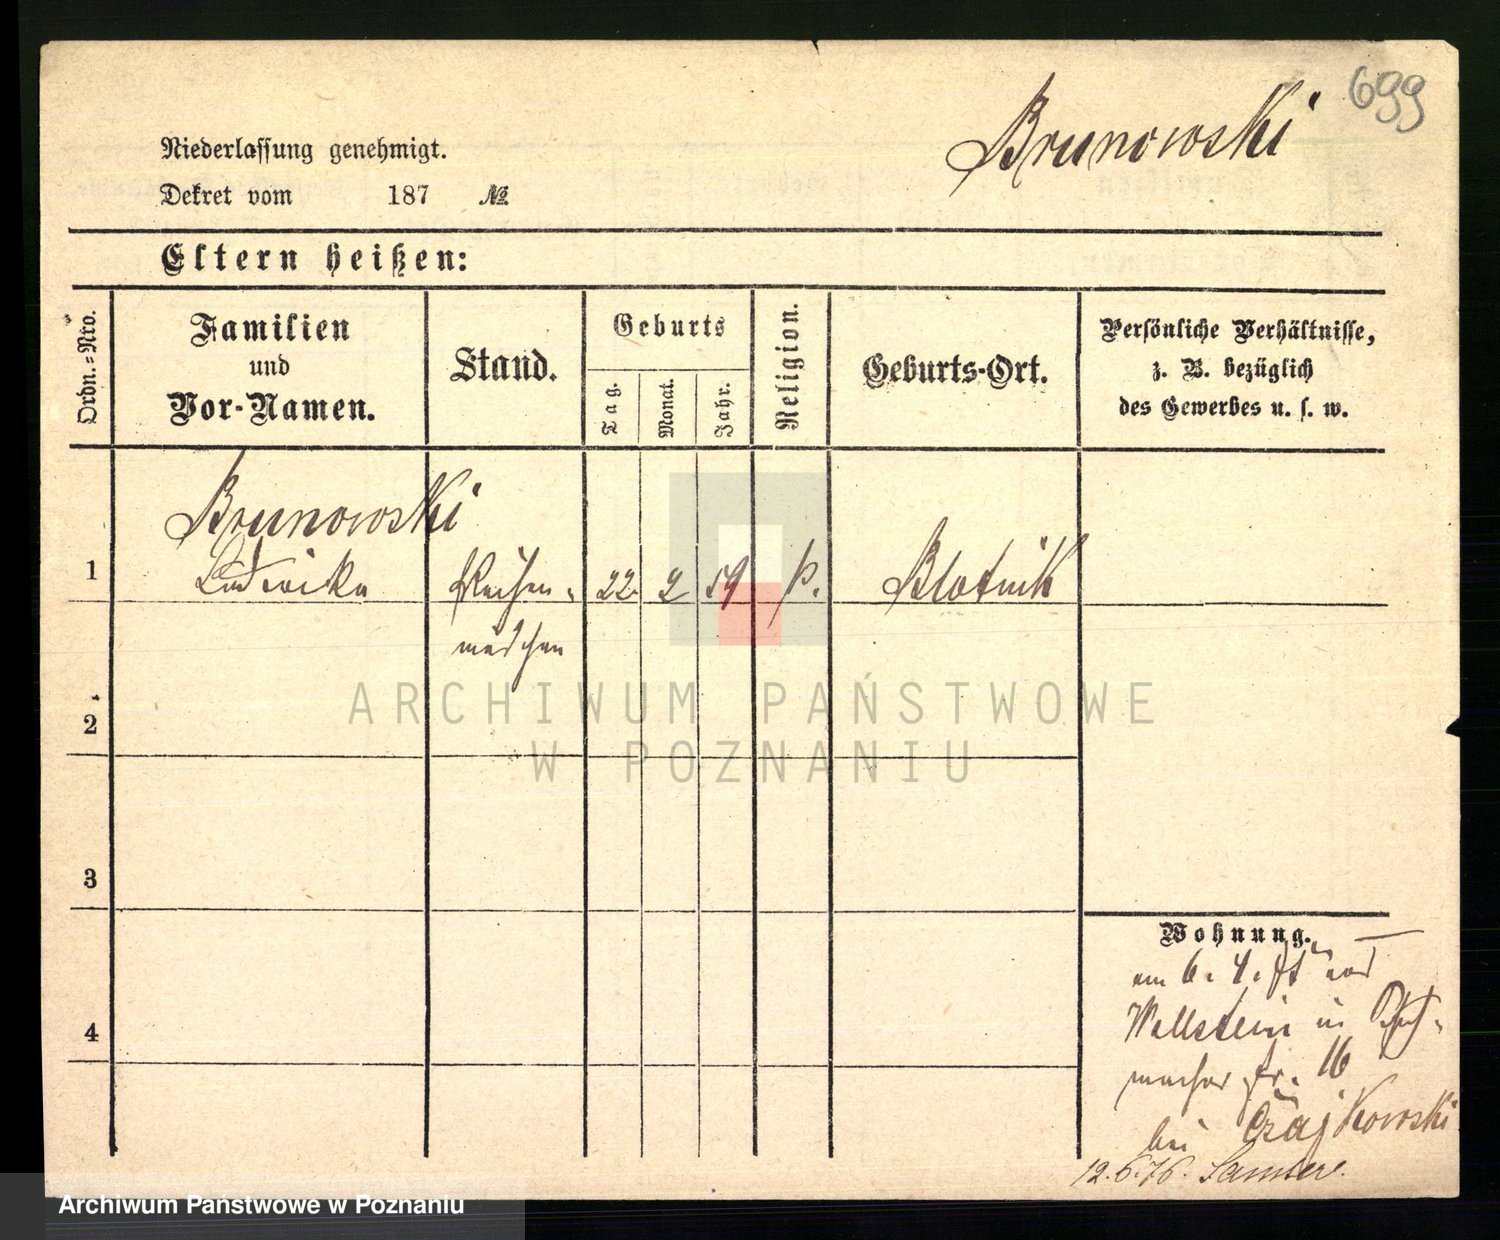 699
Brunowski
Niederlassung genehmigt.
Dekret vom 187 №
Eltern heißen:
Ordn.=Nro.
Familien
und
Vor-Namen.
Stand.
Geburts
Tag.
Monat.
Jahr.
Religion.
Geburts-Ort.
Persönliche Verhältnisse,
z. B. bezüglich
des Gewerbes u. s. w.
Brunowski
1 Ludwika Küchen- 22. 2 59 p. Blotnik
mädchen
2
3
4
Wohnung.
am 6. 4. von
Wollstein in Schuh-
macher str. 16
bei Czajkowski
12.6.76. Samter.
ARCHIWUM PAŃSTWOWE
W POZNANIU
Archiwum Państwowe w Poznaniu